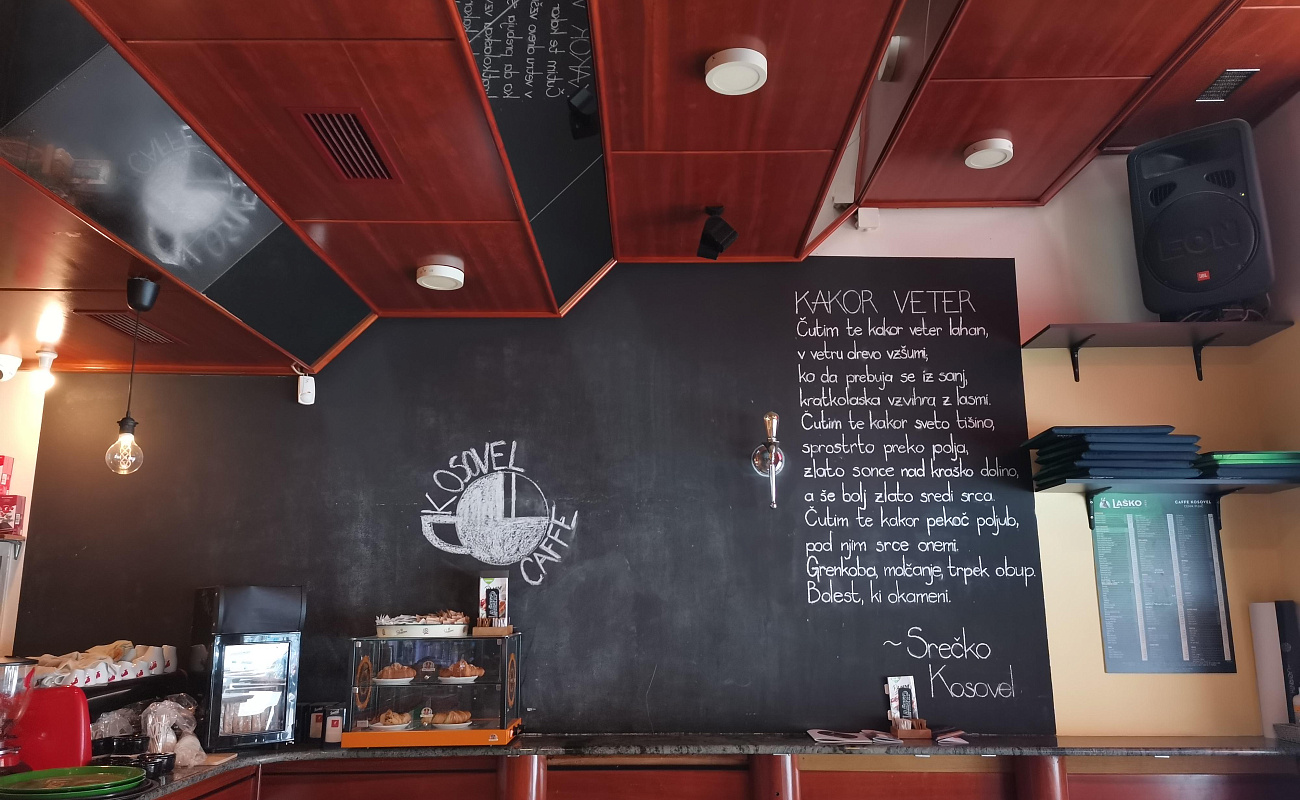 KAKOR VETER
Čutim te kakor veter lahan,
v vetru drevo vzšumi,
ko da prebuja se iz sanj,
kratkolaska vzvihra z lasmi.
Čutim te kakor sveto tišino,
sprostrto preko polja,
zlato sonce nad kraško dolino,
a še bolj zlato sredi srca.
Čutim te kakor pekoč poljub,
pod njim srce onemi.
Grenkoba, molčanje, trpek obup.
Bolest, ki okameni.
~Srečko
Kosovel
KOSOVEL
CAFFE
EON
JBL
LAŠKO
CAFFE KOSOVEL